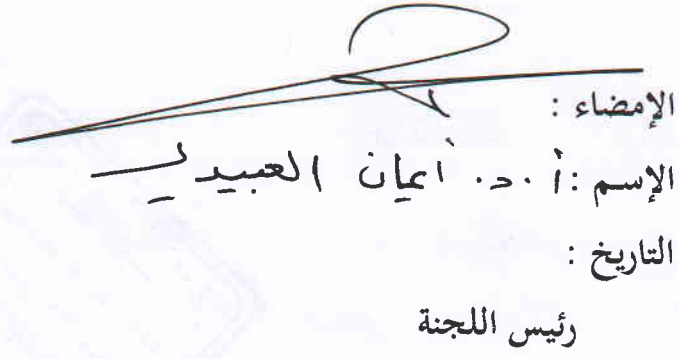 الإمضاء :
الإسم : أ.د. أيمان العبيدي
التاريخ :
رئيس اللجنة